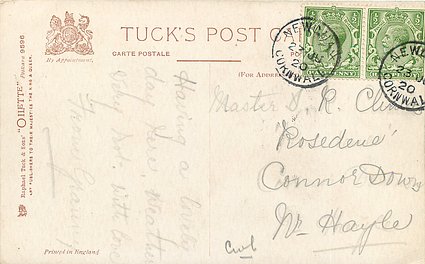 TUCK'S POST
CARTE POSTALE
(FOR ADDRE
By Appointment.
Raphael Tuck & Sons' "OILETTE" Postcard 9596
ART PUBLISHERS TO THEIR MAJESTIES THE KING & QUEEN.
Printed in England.
NEWQUAY
20
CORNWALL
NEW
20
CORNWALL
Having a lovely
day here, Weather
with love
From Granny
Master D. R.
"Rosedene"
Connor Down
Nr. Hayle